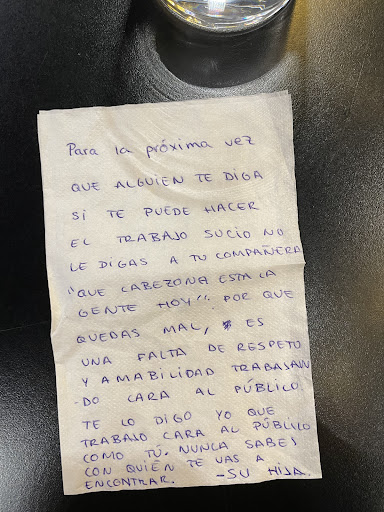 Para la próxima vez
QUE ALGUIEN TE DIGA
SI TE PUEDE HACER
EL TRABAJO SUCIO NO
LE DIGAS A TU COMPAÑERA
"QUE CABEZONA ESTA LA
GENTE HOY". POR QUE
QUEDAS MAL, ES
UNA FALTA DE RESPETO
Y AMABILIDAD TRABAJAN
-DO CARA AL PÚBLICO
TE LO DIGO YO QUE
TRABAJO CARA AL PÚBLICO
COMO TÚ. NUNCA SABES
CON QUIÉN TE VAS A
ENCONTRAR. -SU HIJA.